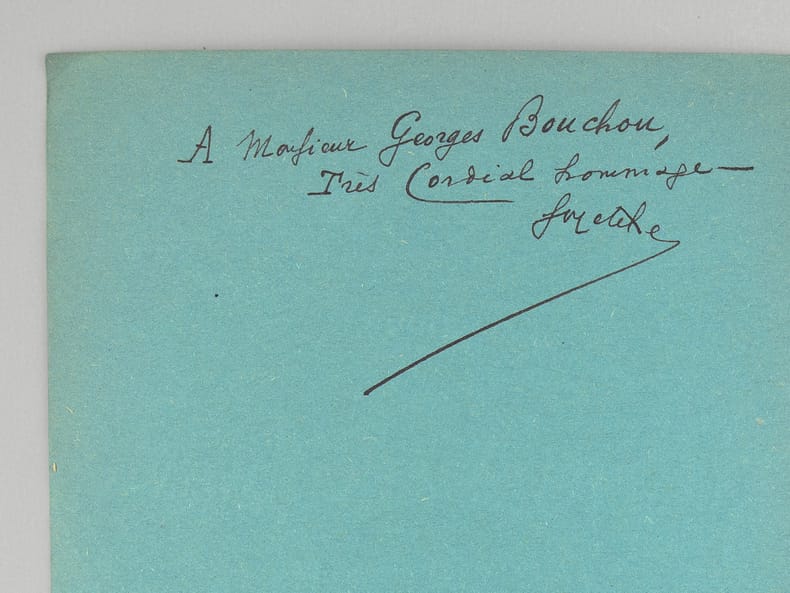 A Monsieur Georges Bouchou,
Très Cordial hommage —